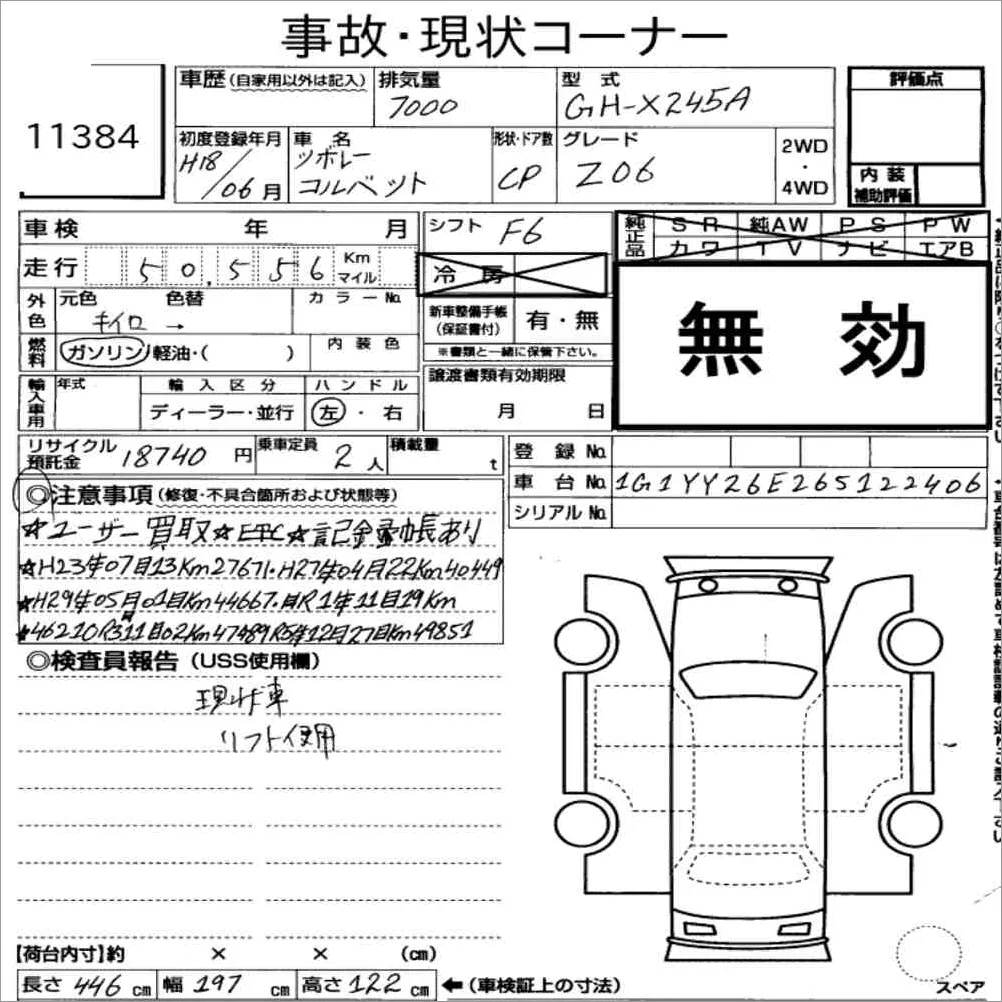 事故・現状コーナー
11384
車歴 (自家用以外は記入) 排気量 型式
7000 GH-X245A
評価点
初度登録年月 車名 形状・ドア数 グレード 2WD・4WD
H18/06月 シボレー コルベット CP Z06
内装補助評価
車検 年 月 シフト F6
純正品 SR 純AW PS PW
カワ TV ナビ エアB
走行 50,556 Km マイル
冷房
無効
外色 元色 色替 カラーNo.
キイロ →
新車整備手帳(保証書付) 有・無
※書類と一緒に保管下さい。
燃料 ガソリン・軽油・( ) 内装色
輸入車用 年式 輸入区分 ハンドル
ディーラー・並行 左・右
譲渡書類有効期限
月 日
リサイクル預託金 18740円 乗車定員 2人 積載量 t
登録No.
車台No. 1G1YY26E265122406
シリアルNo.
◎注意事項(修復・不具合箇所および状態等)
☆ユーザー買取☆ETC☆記録簿あり
☆H23年07月13Km27671・H27年04月22Km40449
☆H29年05月01日Km44667・R1年11月19Km
☆46210R3年11月02Km47489R5年12月27日Km49851
◎検査員報告(USS使用欄)
現状車
リフト使用
【荷台内寸】約 × × (cm)
長さ 446 cm 幅 197 cm 高さ 122 cm ←(車検証上の寸法)
スペア